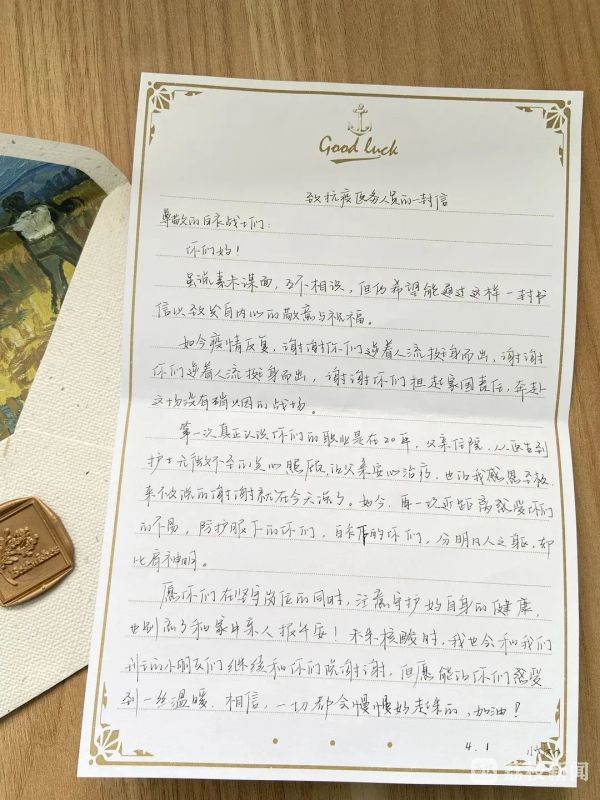 Good luck
致抗疫医务人员的一封信
尊敬的白衣战士们：
你们好！
虽说素未谋面，互不相识，但仍希望能通过这样一封书
信以致发自内心的敬意与祝福。
如今疫情反复，谢谢你们逆着人流挺身而出，谢谢
你们逆着人流挺身而出，谢谢你们担起家国责任，奔赴
这场没有硝烟的战场。
第一次真正认识你们的职业是在20年，父亲住院，从医生到
护士无微不至的关心照顾让父亲安心治疗，也让我感恩至极，
来不及说的谢谢就在今天说了。如今，再一次近距离感受你们
的不易，防护服下的你们，白衣下的你们，分明凡人之躯，却
比肩神明。
愿你们在坚守岗位的同时，注意守护好自身的健康，
也别忘了和家中亲人报平安！未来核酸时，我也会和我们
的小朋友们继续和你们说谢谢，但愿能让你们感受
到一丝温暖。相信，一切都会慢慢好起来的，加油！
4.1
荔枝新闻